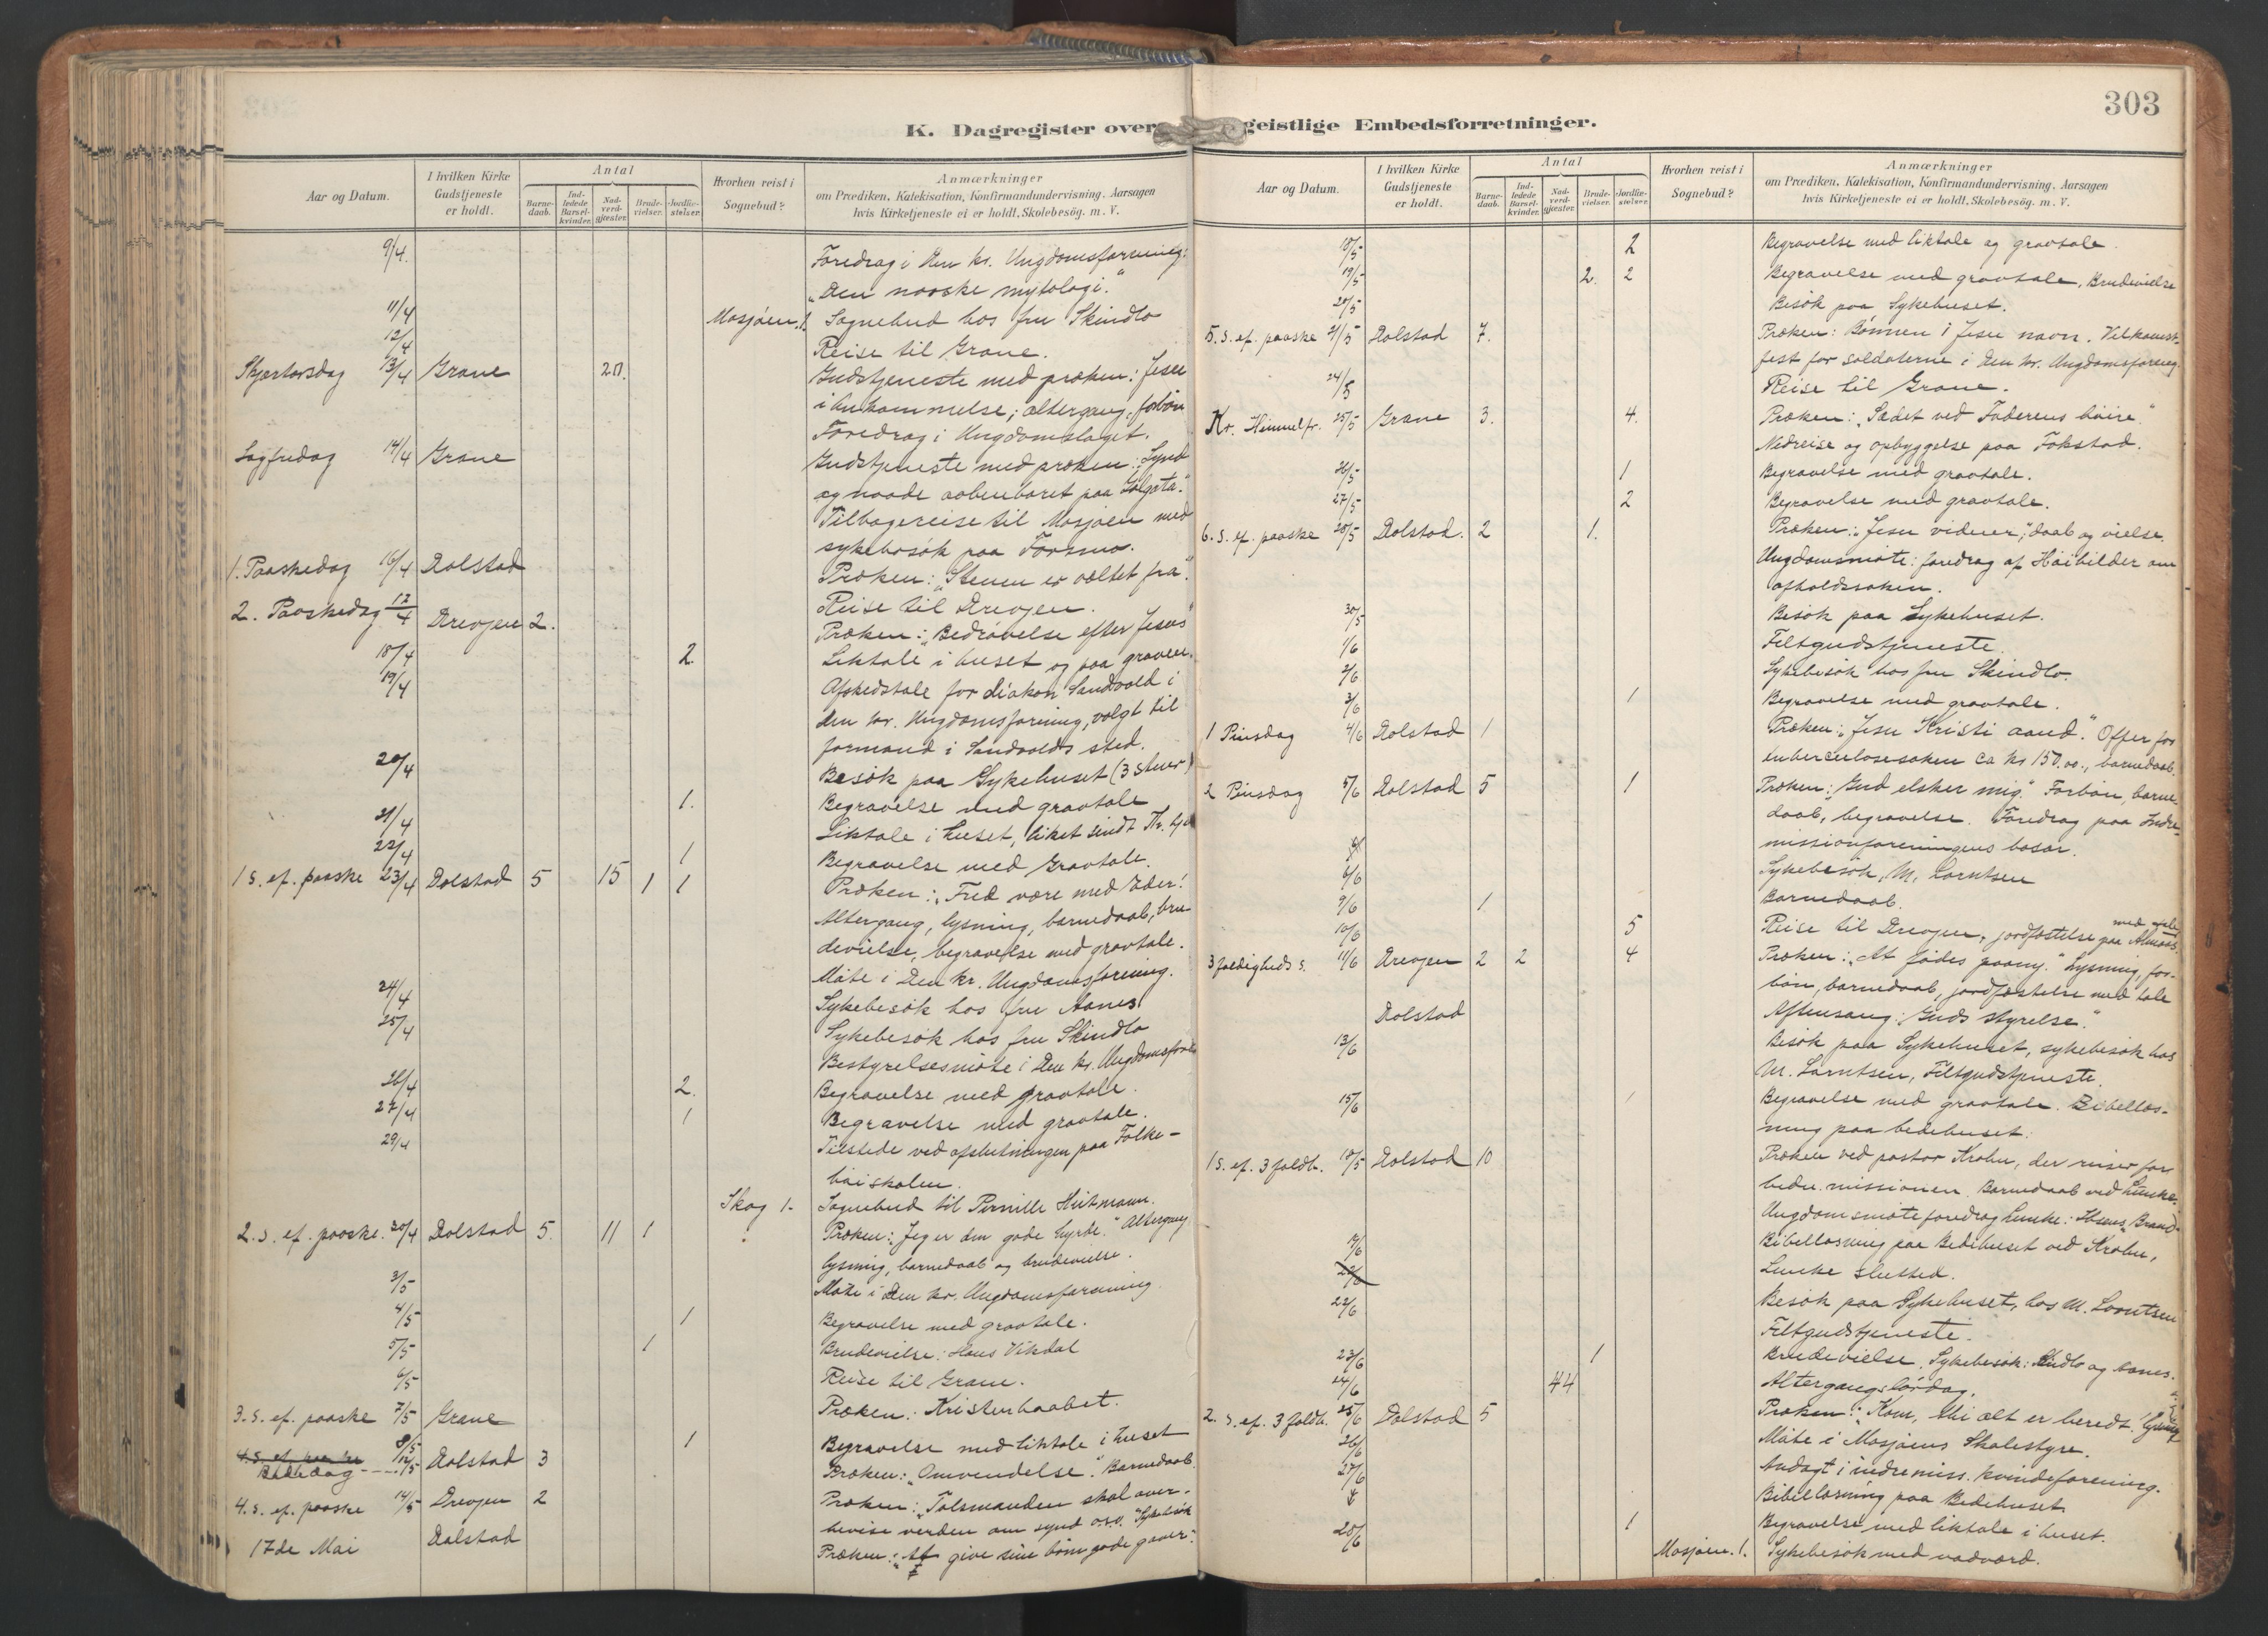 303
K. Dagregister over geistlige Embedsforretninger.
Aar og Datum. I hvilken Kirke Gudstjeneste er holdt. Antal Barne-daab. Ind-ledede Barsel-kvinder. Nad-verd-gjester. Brude-vielser. Jordfæ-stelser. Hvorhen reist i Sognebud? Anmærkninger om Prædiken, Katekisation, Konfirmandundervisning. Aarsagen hvis Kirketjeneste ei er holdt, Skolebesög. m. V.
9/4. Foredrag i Den kr. Ungdomsforening:
„Den norske mytologi."
11/4 Mosjøen. 1. Sognebud hos fru Skindlo
12/4 Reise til Grane.
Skjærtorsdag 13/4 Grane 20. Gudstjeneste med præken: Jesu
ihukommelse; altergang, forbön
Foredrag i Ungdomslaget.
Langfredag 14/4 Grane Gudstjeneste med præken: „Synd
og naade aabenbaret paa Golgata."
Tilbagereise til Mosjøen med
sykebesök paa Forsmo.
1. Paaskedag 16/4 Dolstad Præken: „Stenen er væltet fra".
2. Paaskedag 17/4 Drevjen 2. Reise til Drevjen.
Præken: „Bedrövelse efter Jesus"
18/4 2. Liktale i huset og paa graven.
19/4 Afskedstale for diakon Sandvold i
den kr. Ungdomsforening, valgt til
formand i Sandvolds sted.
20/4 Besök paa Sykehuset (3 stuer)
1. Begravelse med gravtale
21/4 Liktale i huset, liket sendt
22/4 1 Begravelse med Gravtale.
1 s. ef. paaske 23/4 Dolstad 5 15 1 1 Præken: „Fred være med Eder!
Altergang, lysning, barnedaab, bru-
devielse, begravelse med gravtale.
Möte i Den kr. Ungdomsforening.
24/4 Sykebesök hos fru Aanes
25/4 Sykebesök hos fru Skindlo
Bestyrelsesmöte i Den kr. Ungdomsforen
26/4 2. Begravelse med gravtale.
27/4 1 Begravelse med gravtale.
29/4 Tilstede ved afslutningen paa Folke-
höiskolen.
Skog 1. Sognebud til Pernille Hutmann.
2. s. ef. paaske. 30/4 Dolstad 5. 11 1 Præken: „Jeg er den gode hyrde." Altergang
lysning, barnedaab og brudevielse.
3/5 Möte i Den kr. Ungdomsforening.
4/5 1 Begravelse med gravtale.
5/5 1 Brudevielse: Hans Vikdal
6/5 Reise til Grane.
3. s. ef. paaske 7/5 Grane Præken: Kristenhaabet.
8/5 1 Begravelse med liktale i huset
Bededag 12/5 Dolstad 3 Præken: „Omvendelse". Barnedaab.
4. s. ef. paaske 14/5 Drevjen 2 Præken: „Talsmanden skal over-
bevise verden om synd o.s.v. Sykebesök
17de Mai Dolstad Præken: „At give sine börn gode gaver".
Aar og Datum. I hvilken Kirke Gudstjeneste er holdt. Antal Barne-daab. Ind-ledede Barsel-kvinder. Nad-verd-gjester. Brude-vielser. Jordfæ-stelser. Hvorhen reist i Sognebud? Anmærkninger om Prædiken, Katekisation, Konfirmandundervisning, Aarsagen hvis Kirketjeneste ei er holdt, Skolebesög. m. V.
18/5 2 Begravelse med liktale og gravtale.
19/5 2. 2 Begravelse med gravtale, Brudevielse
20/5 Besök paa Sykehuset.
5. s. ef. paaske 21/5 Dolstad 7. Præken: Bönnen i Jesu navn. Velkomst-
fest for soldaterne i Den kr. Ungdomsforeng.
24/5 Reise til Grane.
Kr. Himmelfr. 25/5 Grane 3. 4. Præken: „Sædet ved Faderens höire."
Nedreise og opbyggelse paa Fokstad.
26/5 1 Begravelse med gravtale.
27/5 2 Begravelse med gravtale.
6. s. ef. paaske 28/5 Dolstad. 2 1. Præken: „Jesu vidner"; daab og vielse.
Ungdomsmöte: foredrag af Höibilder om
afholdssaken.
30/5 Besök paa Sykehuset.
1/6 Feltgudstjeneste.
2/6 Sykebesök hos fru Skindlo.
3/6 1 Begravelse med gravtale.
1 Pinsdag 4/6 Dolstad 1 Præken: „Jesu Kristi aand." Offer for
tuberculosesaken ca kr 150.00., barnedaab.
2 Pinsdag 5/6 Dolstad 5 1 Præken: „Gud elsker mig." Forbön, barne-
daab, begravelse. Foredrag paa Indre-
missionforeningens basar.
6/6 Sykebesök, M. Lorntsen
9/6 1 Barnedaab.
10/6 5 Reise til Drevjen, jordfæstelse med tale paa
3foldigheds s. 11/6 Drevjen 2 2 4 Præken: „At födes paany." Lysning, for-
bön, barnedaab, jordfæstelse med tale
Dolstad Aftensang: „Guds styrelse".
13/6 Besök paa Sykehuset, sykebesök hos
M. Lorntsen, Feltgudstjeneste.
15/6 1 Begravelse med gravtale. Bibellæs-
ning paa bedehuset.
1 s. ef. 3foldh. 18/5 Dolstad 10 Præken ved pastor Krohn, der reiser for
indre missionen. Barnedaab ved Lincke.
Ungdomsmöte foredrag Lincke: Ibsens „Brand.
Bibellæsning paa Bedehuset ved Krohn,
Lincke sluttede.
22/6 Besök paa Sykehuset, hos M. Lorntsen
Feltgudstjeneste.
23/6 1 Brudevielse. Sykebesök: Skindlo og Aanes.
24/6 44 Altergangslördag.
2. s. ef. 3foldh. 25/6 Dolstad 5 Præken: „Kom, thi alt er beredt!
26/6 Möte i Mosjøens Skolestyre.
27/6 Andagt i indremiss. kvindeforening.
Bibellæsning paa Bedehuset.
1 Begravelse med liktale i huset.
28/6 Mosjøen. 1. Sykebesök med nadverd.